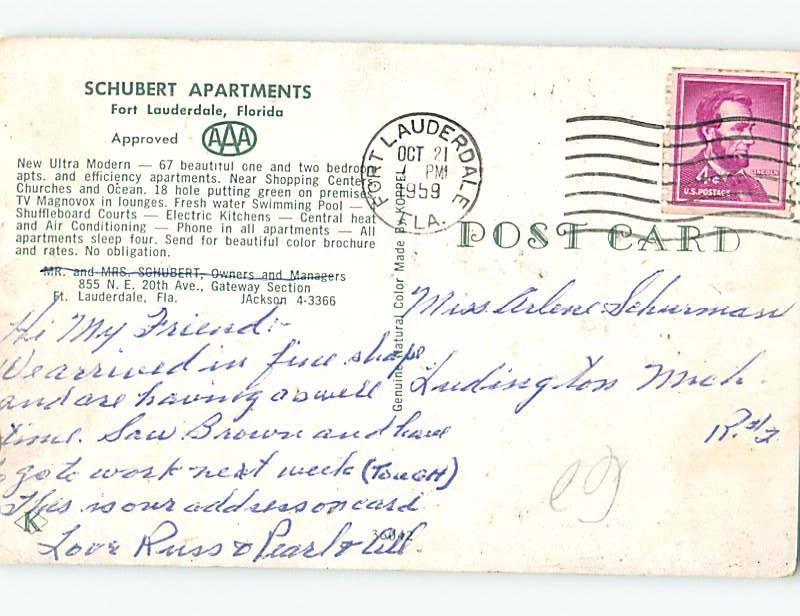 SCHUBERT APARTMENTS
Fort Lauderdale, Florida
Approved AAA
New Ultra Modern — 67 beautiful one and two bedroom
apts. and efficiency apartments. Near Shopping Center,
Churches and Ocean. 18 hole putting green on premises
TV Magnovox in lounges. Fresh water Swimming Pool —
Shuffleboard Courts — Electric Kitchens — Central heat
and Air Conditioning — Phone in all apartments — All
apartments sleep four. Send for beautiful color brochure
and rates. No obligation.
MR. and MRS. SCHUBERT, Owners and Managers
855 N. E. 20th Ave., Gateway Section
Ft. Lauderdale, Fla. JAckson 4-3366
Hi My Friend:-
We arrived in fine shape
and are having a swell
time. Saw Brown and have
to go to work next week (TOUGH)
This is our address on card
Love Russ & Pearl &
K
36042
Genuine Natural Color Made By KOPPEL
FORT LAUDERDALE
OCT 21
PM
1959
FLA.
LINCOLN
4¢
U.S. POSTAGE
POST CARD
Miss. Arlene Schurman
Ludington Mich.
R. #2